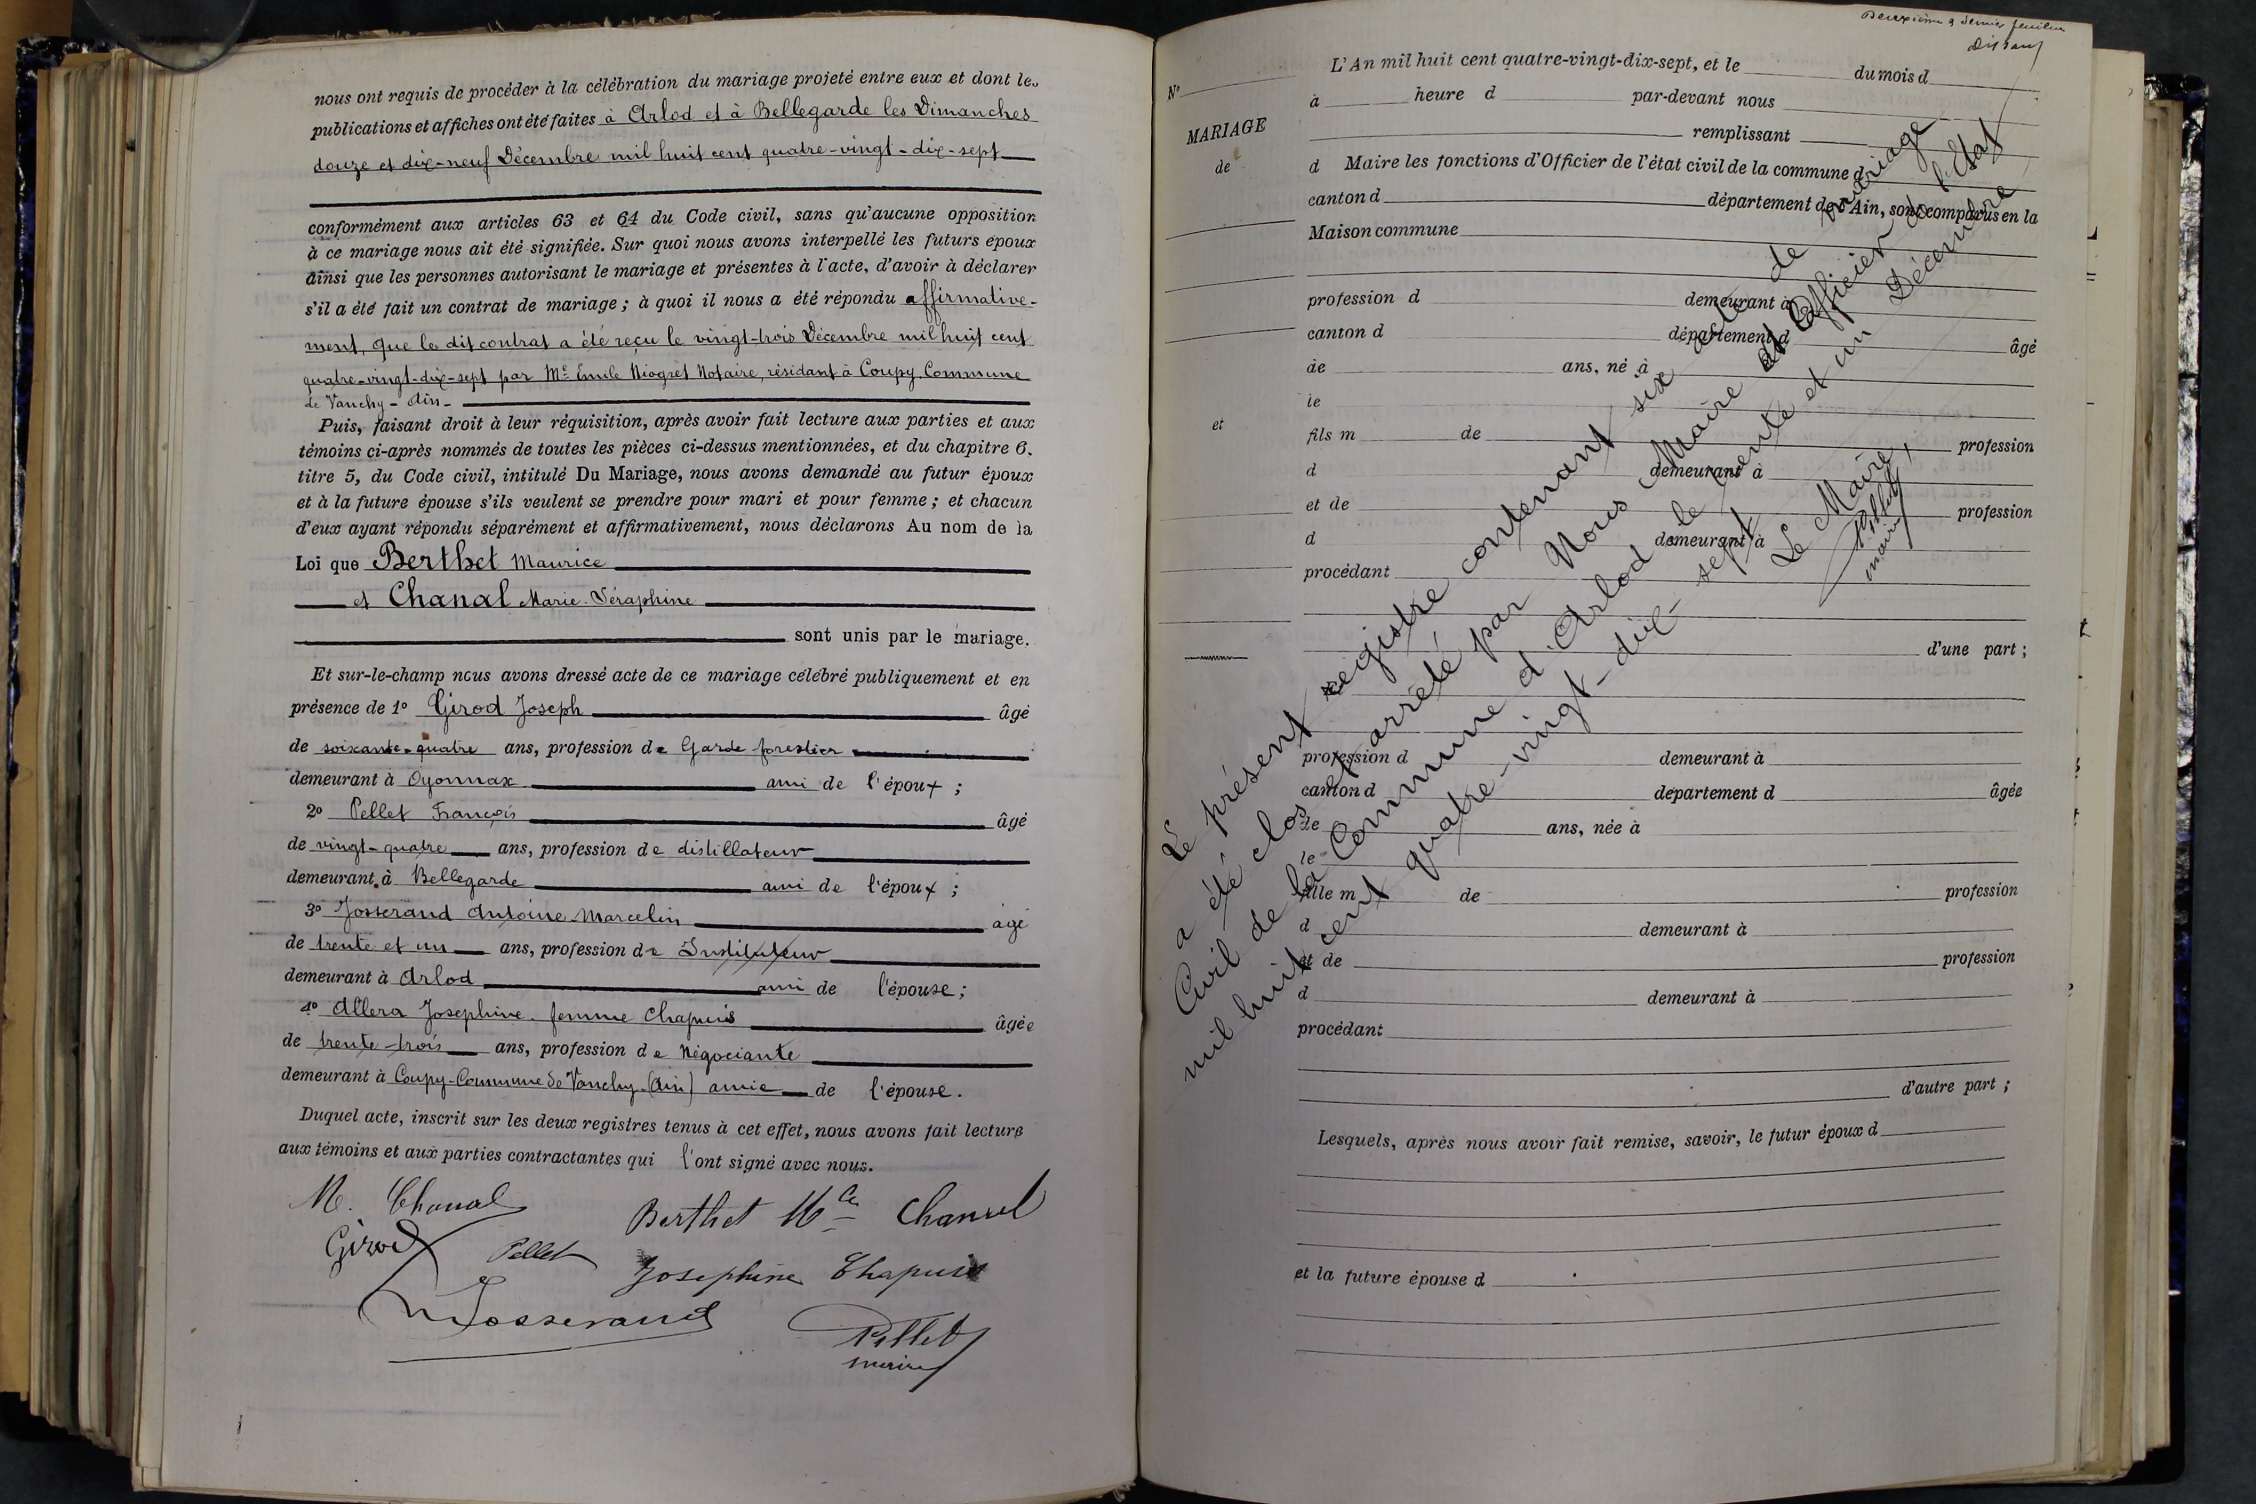 nous ont requis de procéder à la célébration du mariage projeté entre eux et dont les
publications et affiches ont été faites à Arlod et à Bellegarde les Dimanches
douze et dix-neuf Décembre mil huit cent quatre-vingt-dix-sept
conformément aux articles 63 et 64 du Code civil, sans qu'aucune opposition
à ce mariage nous ait été signifiée. Sur quoi nous avons interpellé les futurs époux
ainsi que les personnes autorisant le mariage et présentes à l'acte, d'avoir à déclarer
s'il a été fait un contrat de mariage ; à quoi il nous a été répondu affirmative-
ment, que le dit contrat a été reçu le vingt-trois Décembre mil huit cent
quatre-vingt-dix-sept par Me Emile Niogret Notaire, résidant à Coupy Commune
de Vanchy - Ain -
Puis, faisant droit à leur réquisition, après avoir fait lecture aux parties et aux
témoins ci-après nommés de toutes les pièces ci-dessus mentionnées, et du chapitre 6.
titre 5, du Code civil, intitulé Du Mariage, nous avons demandé au futur époux
et à la future épouse s'ils veulent se prendre pour mari et pour femme ; et chacun
d'eux ayant répondu séparément et affirmativement, nous déclarons Au nom de la
Loi que Berthet Maurice
et Chanal Marie-Séraphine
sont unis par le mariage.
Et sur-le-champ nous avons dressé acte de ce mariage célébré publiquement et en
présence de 1º Girod Joseph âgé
de soixante-quatre ans, profession de Garde forestier
demeurant à Oyonnax ami de l'époux ;
2º Pellet François âgé
de vingt-quatre ans, profession de distillateur
demeurant à Bellegarde ami de l'époux ;
3º Josserand Antoine Marcelin âgé
de trente et un ans, profession de Instituteur
demeurant à Arlod ami de l'épouse ;
4º Allera Joséphine femme Chapuis âgée
de trente-trois ans, profession de Négociante
demeurant à Coupy-Commune de Vanchy (Ain) amie de l'épouse.
Duquel acte, inscrit sur les deux registres tenus à cet effet, nous avons fait lecture
aux témoins et aux parties contractantes qui l'ont signé avec nous.
M. Chanal
Berthet Mce Chanal
Girod Pellet Josephine Chapuis
Josserand
Pellet
maire
Deuxième & dernier feuillet
L'An mil huit cent quatre-vingt-dix-sept, et le du mois d
Nº à heure d par-devant nous
MARIAGE remplissant
de d Maire les fonctions d'Officier de l'état civil de la commune d
canton d département de l'Ain, sont comparus en la
Maison commune
profession d demeurant à
canton d département d âgé
de ans, né à
le
et fils m de profession
d demeurant à
et de profession
d demeurant à
procédant
d'une part ;
profession d demeurant à
canton d département d âgée
de ans, née à
le
fille m de profession
d demeurant à
et de profession
d demeurant à
procédant
d'autre part ;
Lesquels, après nous avoir fait remise, savoir, le futur époux d
et la future épouse d
Le présent registre contenant six actes de mariage
a été clos et arrêté par Nous Maire et Officier de l'Etat
Civil de la Commune d'Arlod le trente et un Décembre
mil huit cent quatre-vingt-dix-sept
Le Maire,
Pellet
maire